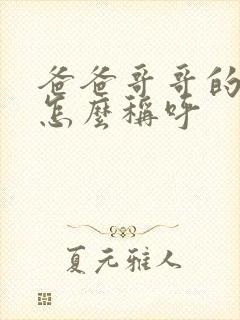 爸爸哥哥的
怎麼稱呼
夏元雅人